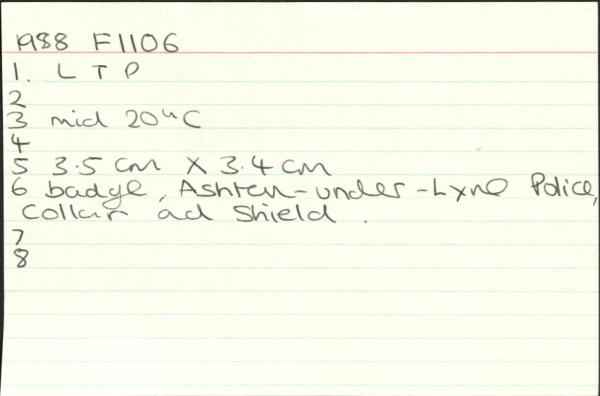 1988 F1106
1. L T P
2
3 mid 20th C
4
5 3.5 cm X 3.4 cm
6 badge, Ashton-under-Lyne Police,
Collar ad Shield.
7
8